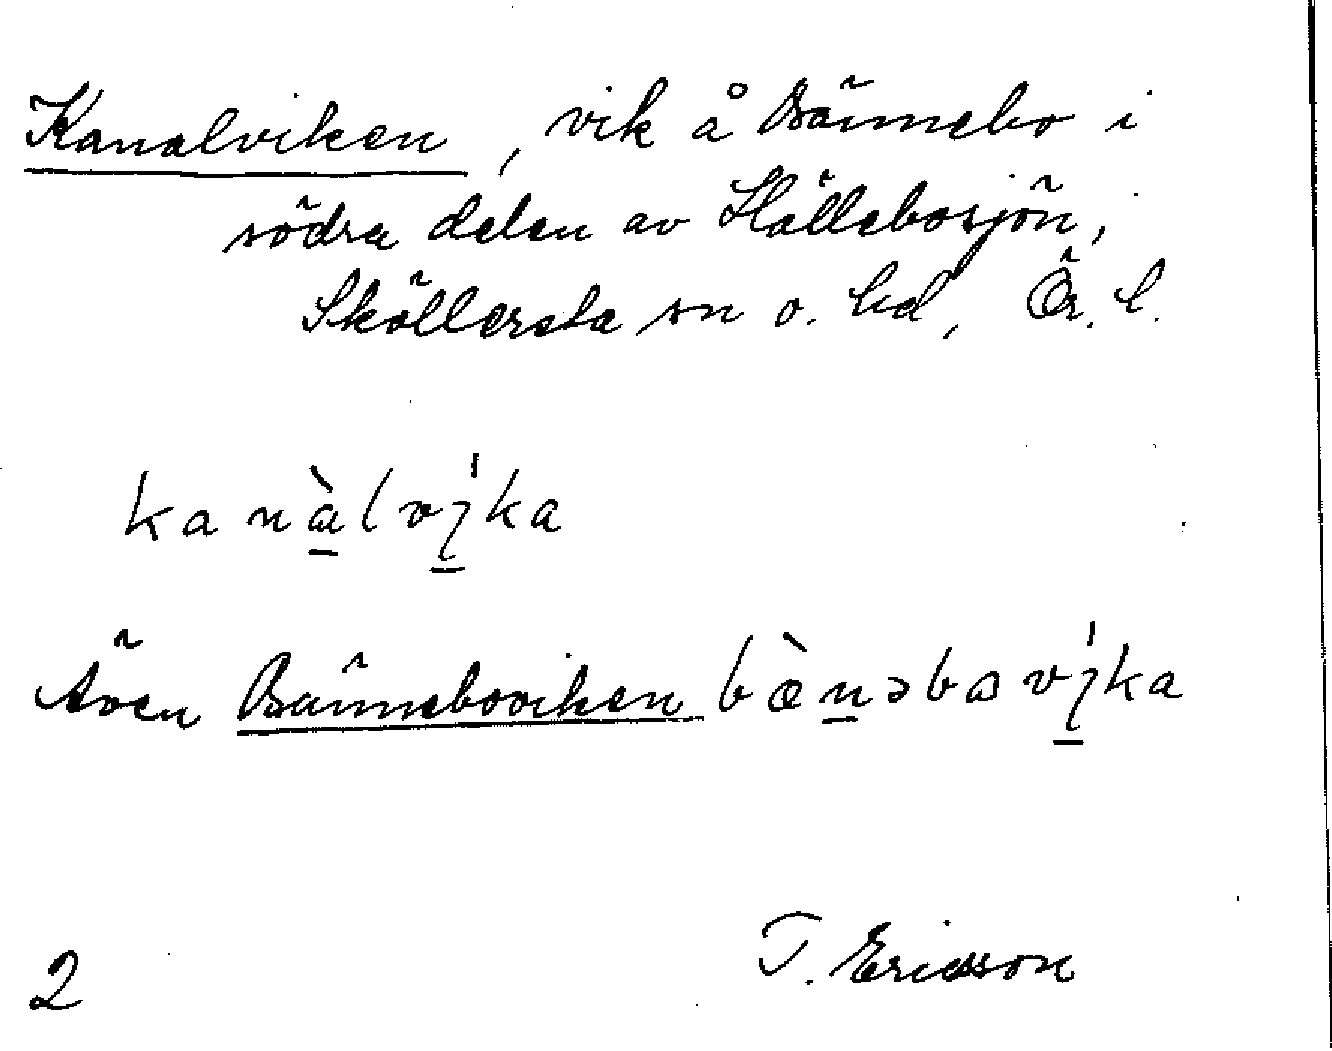 Kanalviken, vik å Bännebo i
södra delen av Hällebosjön,
Sköllersta sn o. hd, Ör. l.
kanàlvi̍ka
Även Bänneboviken bæ̀nəbωvi̍ka
2 T. Ericsson